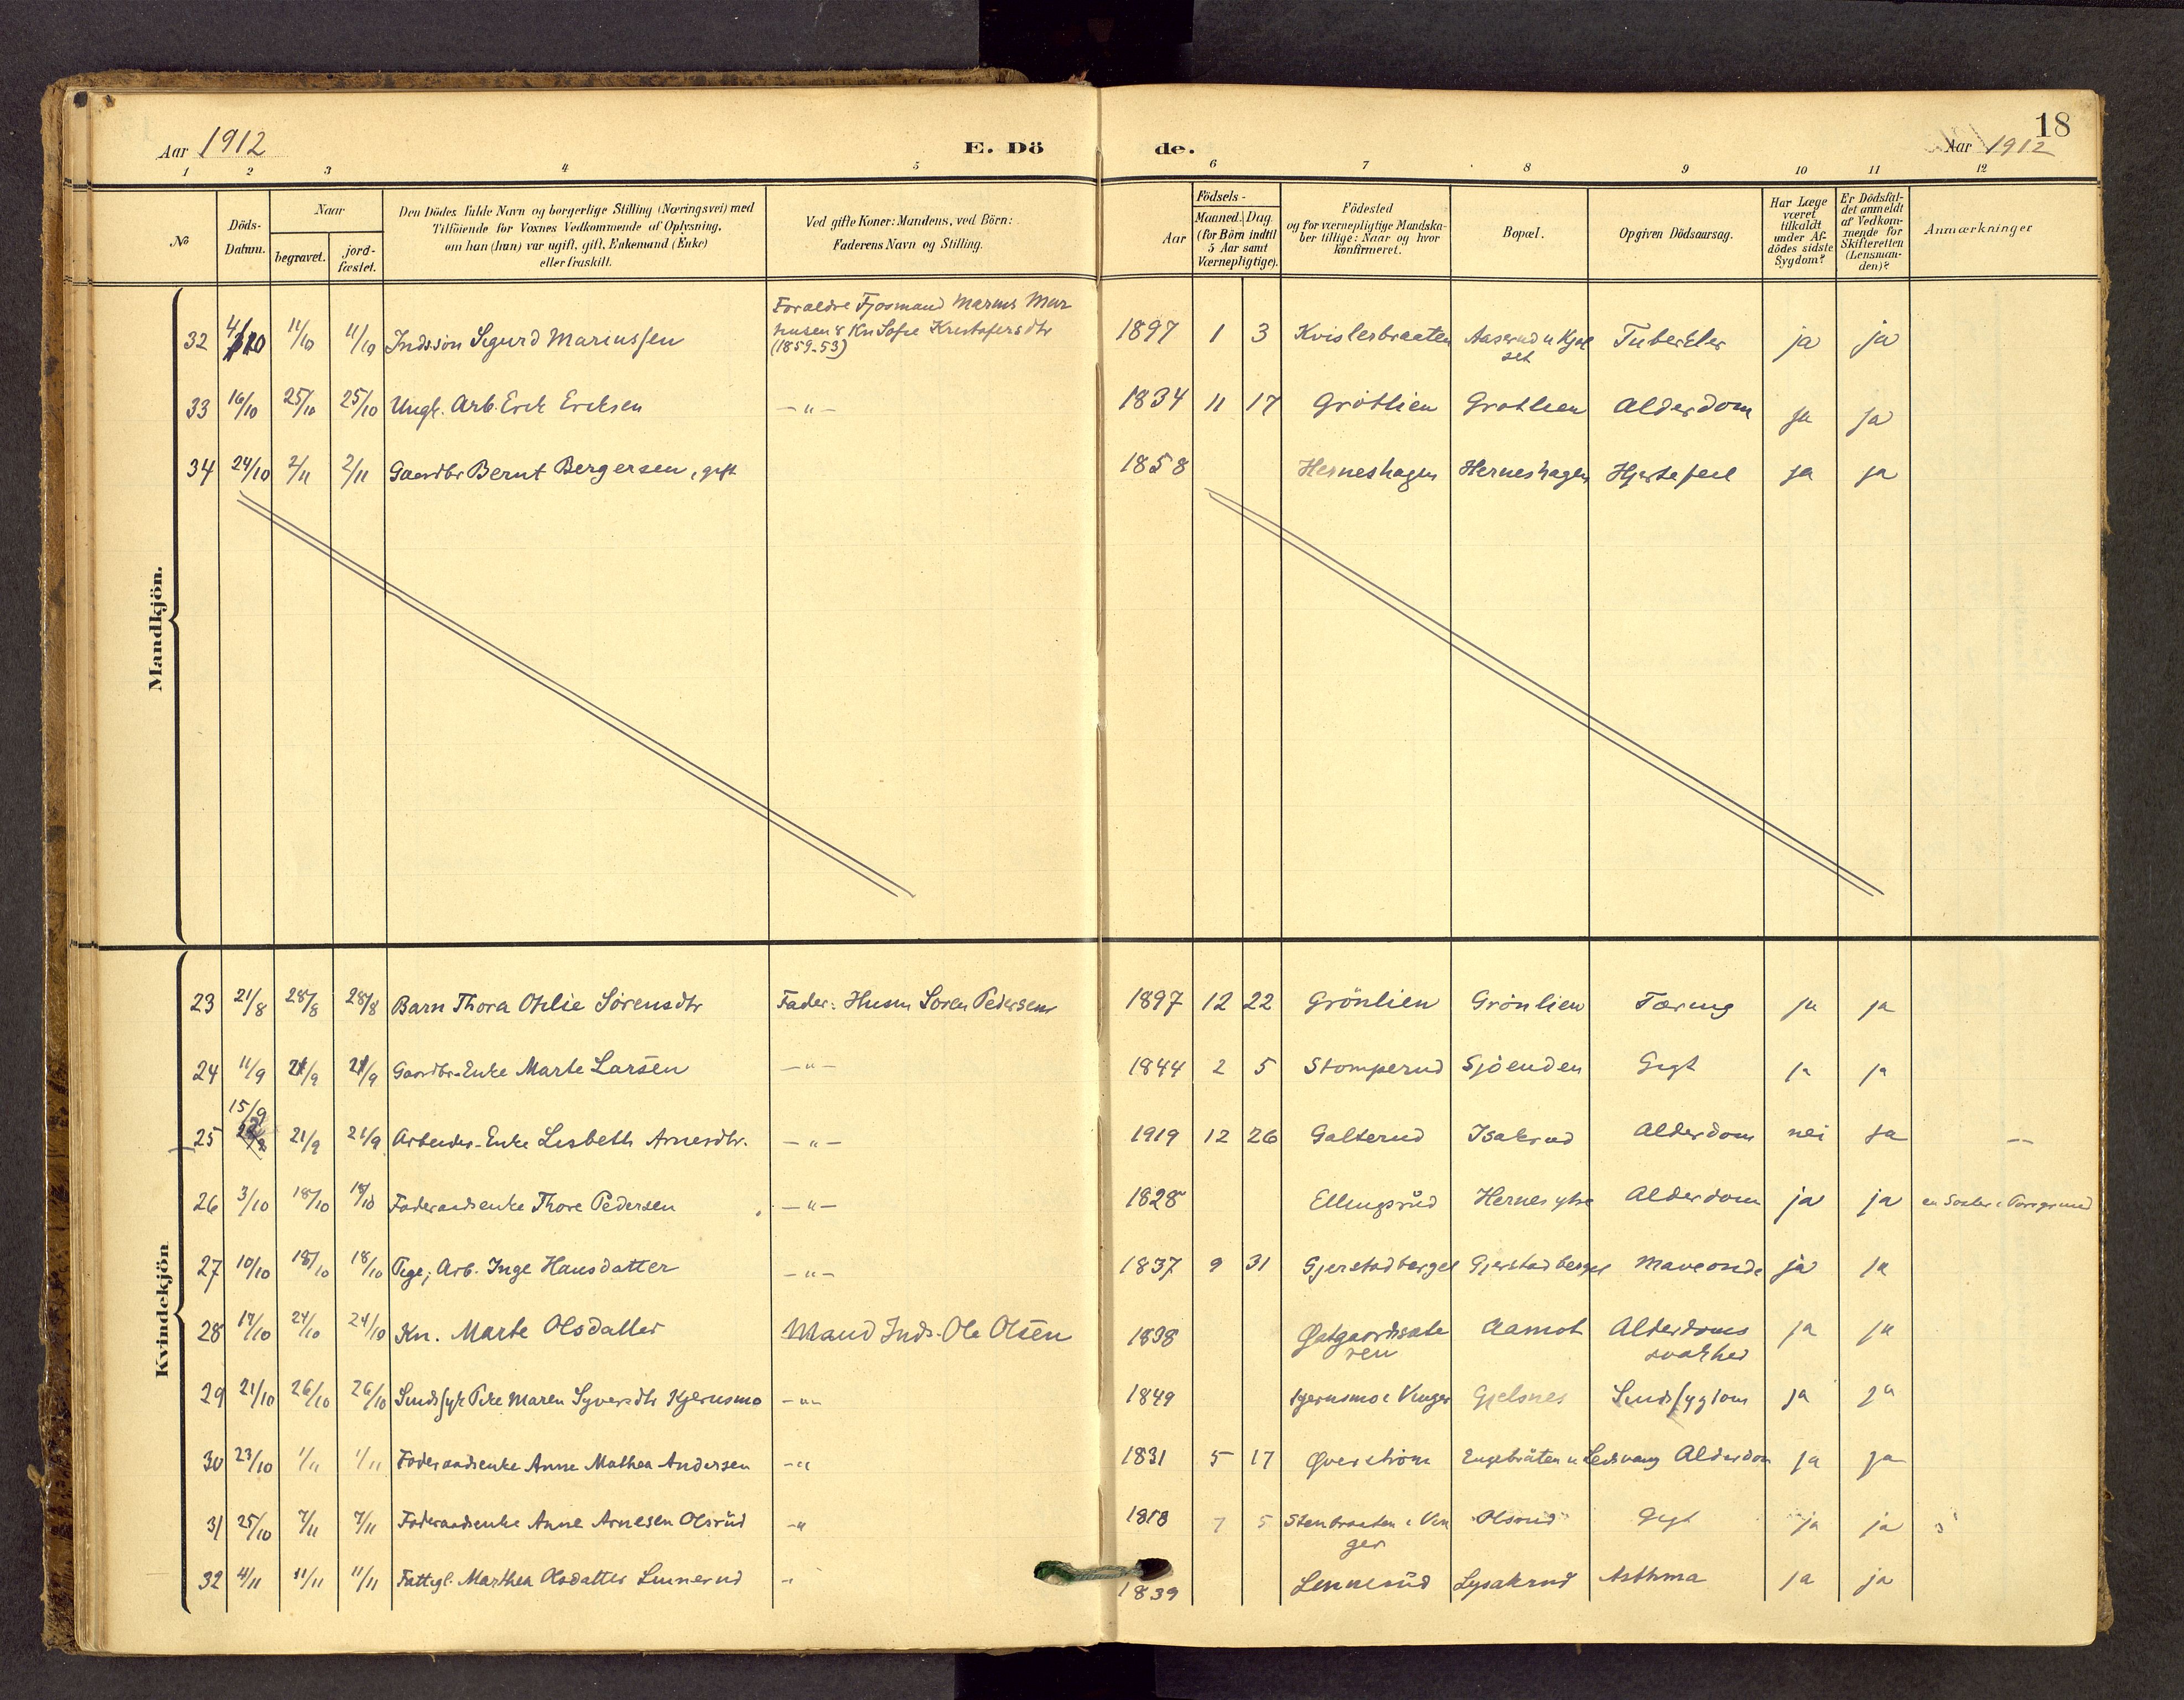 18
Aar 1912
E. Dö
de.
Aar 1912
1 2 3 4 5 6 7 8 9 10 11 12
No
Döds-Datum.
Naar
begravet.
jord-fæstet.
Den Dödes fulde Navn og borgerlige Stilling (Næringsvei) med
Tilföiende for Voxnes Vedkommende af Oplysning,
om han (hun) var ugift, gift, Enkemand (Enke)
eller fraskilt.
Ved gifte Koner: Mandens, ved Börn:
Faderens Navn og Stilling.
Födsels-
Aar
Maaned. Dag.
(for Börn indtil
5 Aar samt
Værnepligtige).
Födested
og for værnepligtige Mandska-
ber tillige: Naar og hvor
konfirmeret.
Bopæl.
Opgiven Dödsaarsag.
Har Læge
været
tilkaldt
under Af-
dödes sidste
Sygdom?
Er Dödsfal-
det anmeldt
af Vedkom-
mende for
Skifteretten
(Lensman-
den)?
Anmærkninger
Mandkjön.
32 4/10 11/10 11/10 Inds.sön Sigurd Mariussen Foraldre Fjosmand Marius Mar
husen & Kn Sofie Kristofersdtr
(1859-53)
1897 1 3 Kvislerbraaten Aaserud u Kjol
set
Tuberkler ja ja
33 16/10 25/10 25/10 Ungk. Arb. Erik Eriksen —"— 1834 11 17 Grötlien Grotlien Alderdom ja ja
34 24/10 2/11 2/11 Gaardbr Bernt Bergersen, gift 1858 Herneshagen Herneshagen Hjertefeil ja ja
Kvindekjön
23 21/8 28/8 28/8 Barn Thora Otilie Sörensdtr Fader: Husm Soren Pedersen 1897 12 22 Grönlien Grönlien Tæring ja ja
24 11/9 21/9 21/9 Gaardbr-Enke Marte Larsen —"— 1844 2 5 Stomperud Sjöenden Gigt ja ja
25 15/9 21/9 21/9 Arbeider-Enke Lisbeth Arnesdtr. —"— 1919 12 26 Galterud Isakrud Alderdom nei ja —
26 3/10 18/10 18/10 Foderaadsenke Thore Pedersen —"— 1828 Ellingsrud Hernes ytre Alderdom ja ja en Soster i Porsgrund
27 10/10 18/10 18/10 Pige; Arb. Inge Hansdatter —"— 1837 9 31 Gjerstadberget Gjerstadberget Maveonde ja ja
28 17/10 24/10 24/10 Kn. Marte Olsdatter Mand Inds. Ole Olsen 1838 Østgaardssæte
ren
Aamot Alderdoms
svakhed
ja ja
29 21/10 26/10 26/10 Sindssyk Pike Maren Syversdtr Kjernsmo —"— 1849 Kjernsmo i Vinger Gjelsnes Sindssygdom ja ja
30 23/10 1/11 1/11 Foderaadsenke Anne Mathea Andersen —" 1831 5 17 Øverström Engebråten u Ledvang Alderdom ja ja
31 25/10 7/11 7/11 Foderaadsenke Anne Arnesen Olsrud —" 1818 7 5 Stenbraaten i Vin
ger
Olsrud Gigt ja ja
32 4/11 11/11 11/11 Fattigl. Marthea Olsdatter Linnerud —" 1839 Linnerud Lysakrud Asthma ja ja